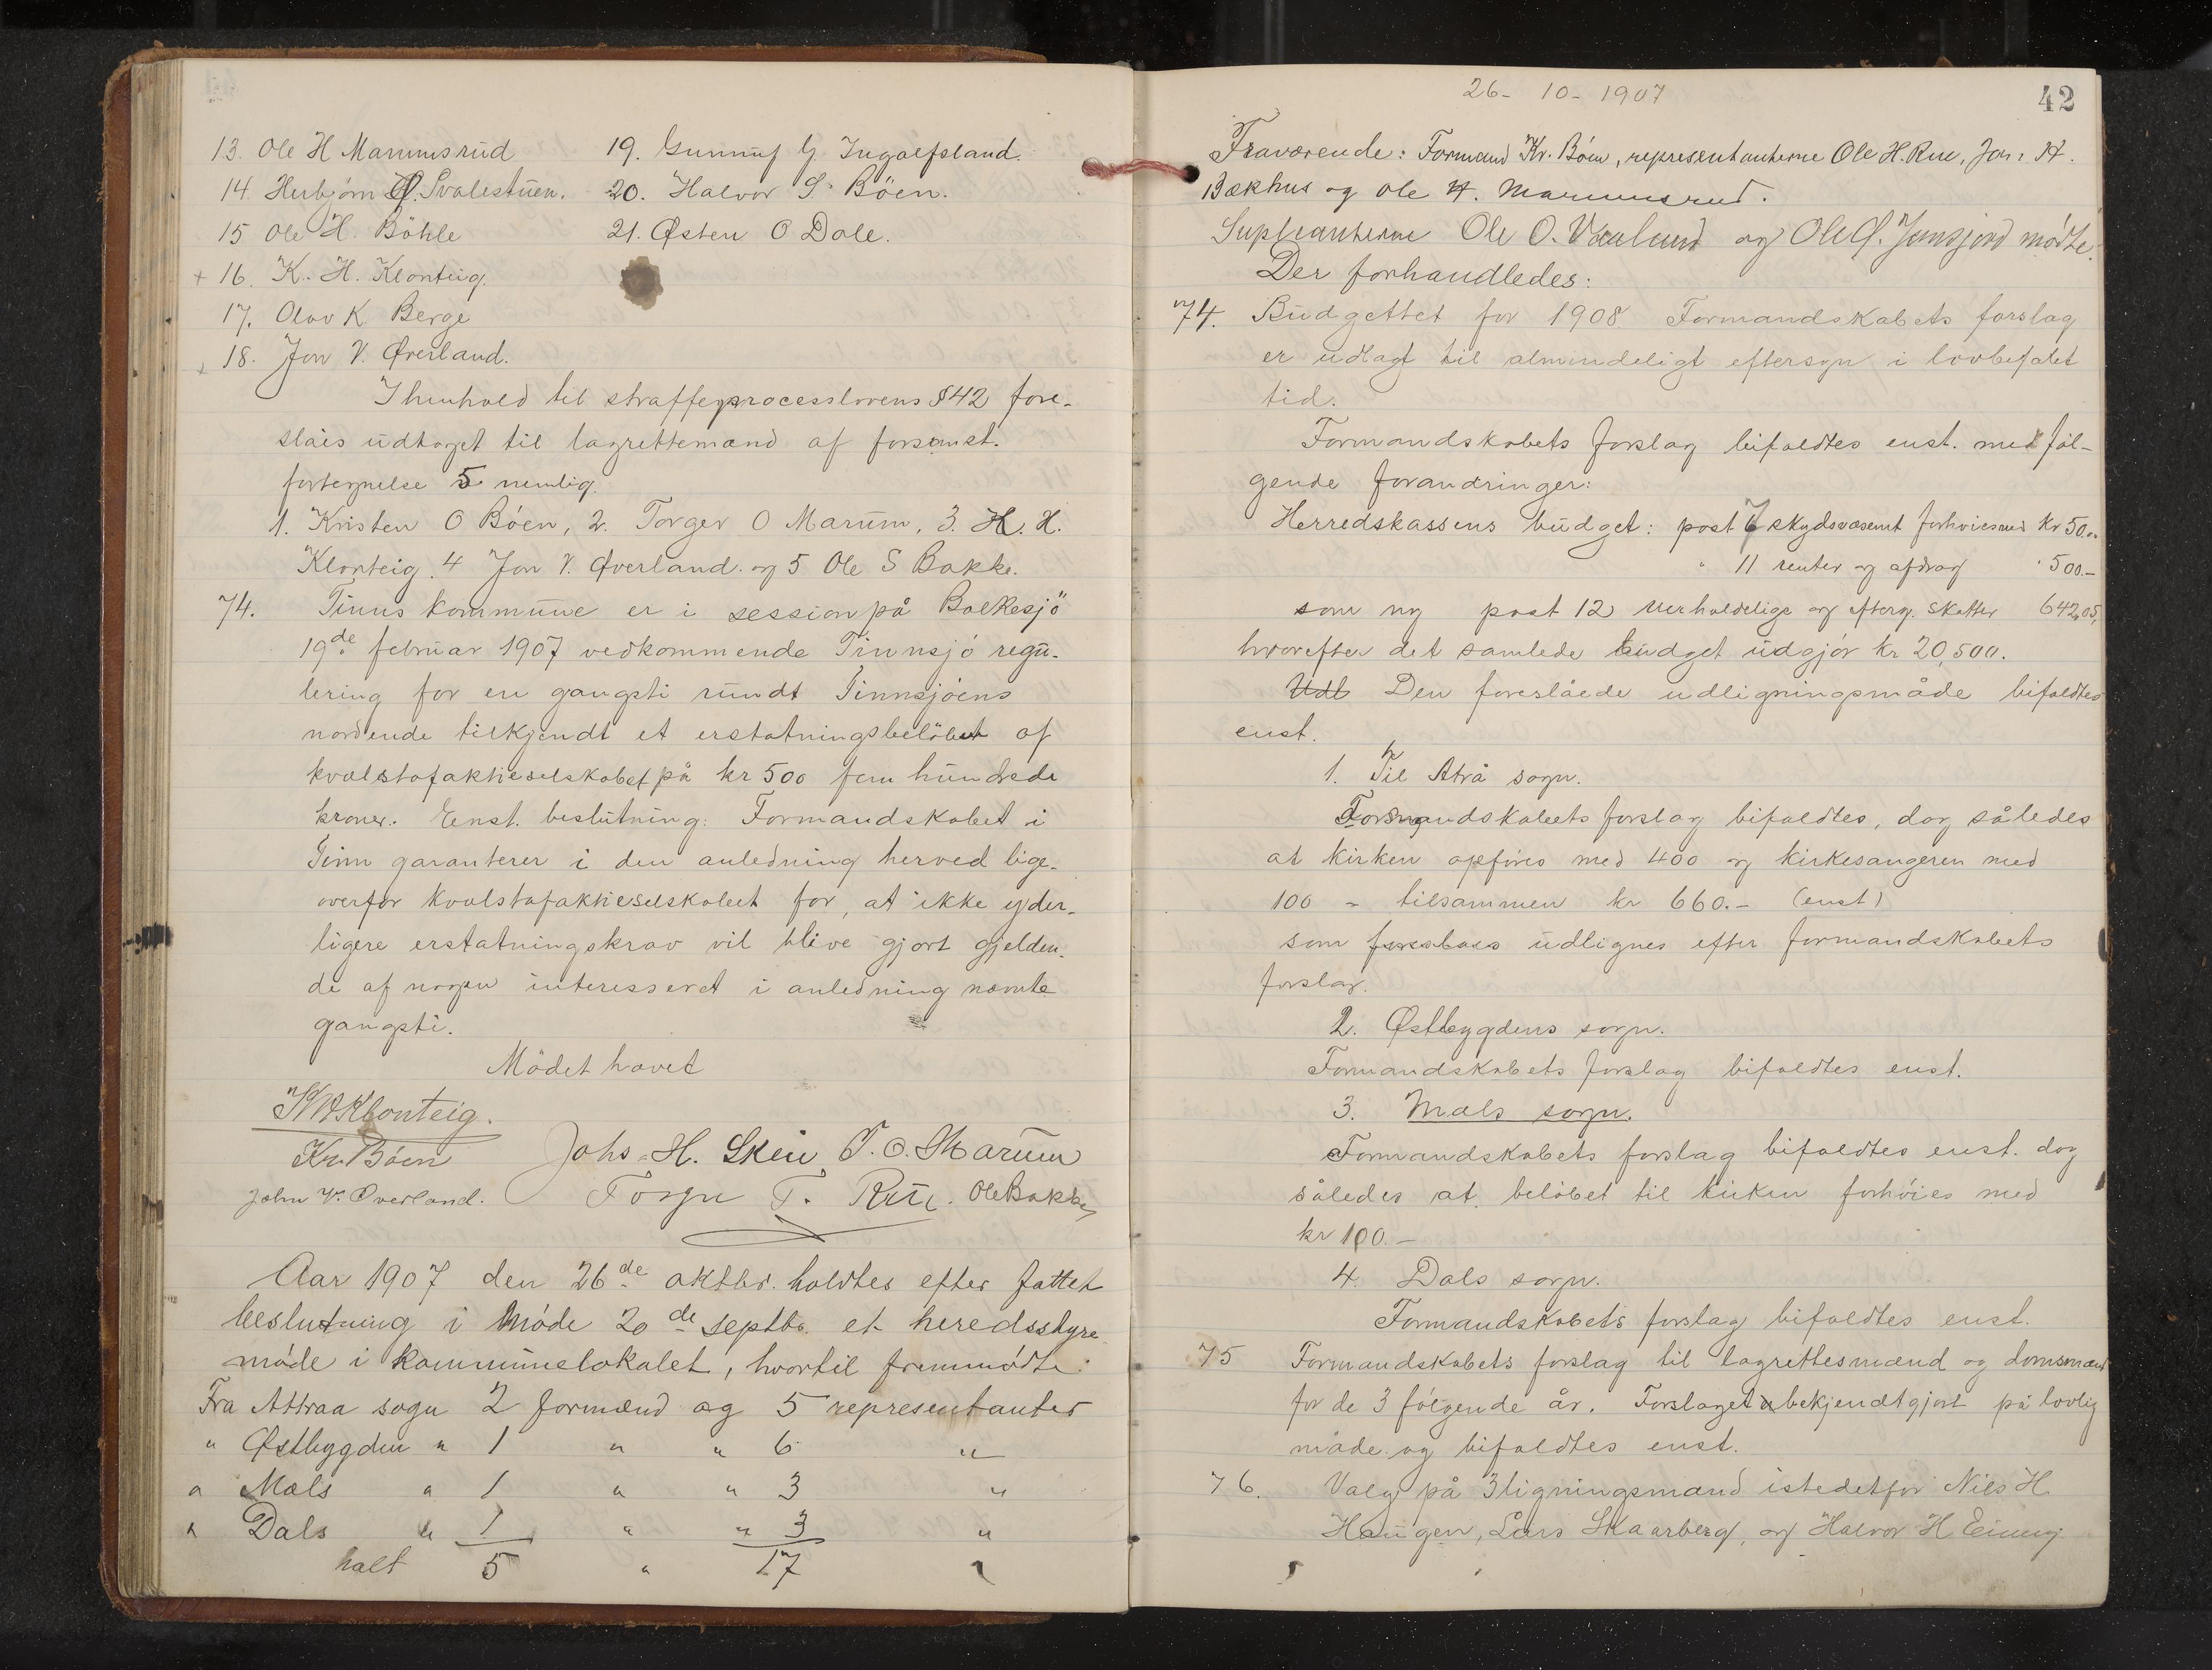 13. Ole H Marumsrud
14. Herbjörn O. Svalestuen.
15 Ole H. Böhle
+ 16. K. H. Klonteig.
17. Olav K. Berge
+ 18. Jon V. Øverland.
19. Gunnuf G Ingolfsland.
20. Halvor S. Böen.
21. Østen O Dale.
I henhold til straffeprocesslovens §42 fore-
slåes udtaget til lagrettemænd af
fortegnelse 5 nemlig.
1. Kristen O Bóen, 2. Torger O Marum, 3. H. H.
Klonteig. 4 Jon V. Øverland. og 5 Ole S Bakke.
74. Tinns kommune er i session på Bolkesjö
19de februar 1907 vedkommende Tinnsjó regu-
lering for en gangsti rundt Tinnsjóens
nordende tilkjendt et erstatningsbelöb af
kvælstofaktieselskabet på kr 500 fem hundrede
kroner. Enst. beslutning: Formandskabet i
Tinn garanterer i den anledning herved lige-
overfor kvælstofaktieselskabet for, at ikke yder-
ligere erstatningskrav vil blive gjort gjelden-
de af nogen interesseret i anledning nævnte
gangsti.
Mödet hævet
K H Klonteig.
Kr. Bóen Johs. H. Skeie T. O. Marum
John V. Øverland. Torger T. Rue. Ole Bakke
Aar 1907 den 26de oktbr. holdtes efter fattet
beslutning i móde 20de septbr. et heredsstyre
móde i kommunelokalet, hvortil fremmódte:
Fra Attraa sogn 2 formænd og 5 representanter
" Østbygden " 1 " " 6 "
" Mæls " 1 " " 3 "
" Dals " 1 " " 3 "
halt 5 " 17 "
26- 10- 1907
42
Fraværende: Formand Kr. Bóen, representanterne Ole H. Rue, Jon H.
Bækhus og Ole H. Marumsrud.
Supleanterne Ole O. Vaaland og Ole mödte.
Der forhandledes:
74. Budgettet for 1908 Formandskabets forslag
er udlagt til almindeligt eftersyn i lovbefalet
tid.
Formandskabets forslag bifaldtes enst. med föl-
gende forandringer:
Herredskassens budget: post 7 skydsvæsenet forhóies med kr 50.00
" 11 renter og afdrag " 500.-
som ny post 12 uerholdelige og efterg. skatter 642,05,
hvorefter det samlede budget udgjór kr 20,500.
Udl Den foreslåede udligningsmåde bifaldtes
enst.
1. Til Atrå sogn.
Formandskabets forslag bifaldtes, dog således
at kirken opföres med 400 og kirkesangeren med
100 - tilsammen kr 660.- (enst)
som udlignes efter formandskabets
forslag.
2. Østbygdens sogn.
Formandskabets forslag bifaldtes enst.
3. Mæls sogn.
Formandskabets forslag bifaldtes enst. dog
således at belóbet til kirken forhóies med
kr 100.-
4. Dals sogn.
Formandskabets forslag bifaldtes enst.
75 Formandskabets forslag til lagrettesmænd og domsmænd
for de 3 fólgende år. Forslaget bekjendtgjort på lovlig
måde og bifaldtes enst.
76. Valg på 3 ligningsmænd istedetfor Nils H.
Haugen, Lars Skaarberg, og Halvor H Einung